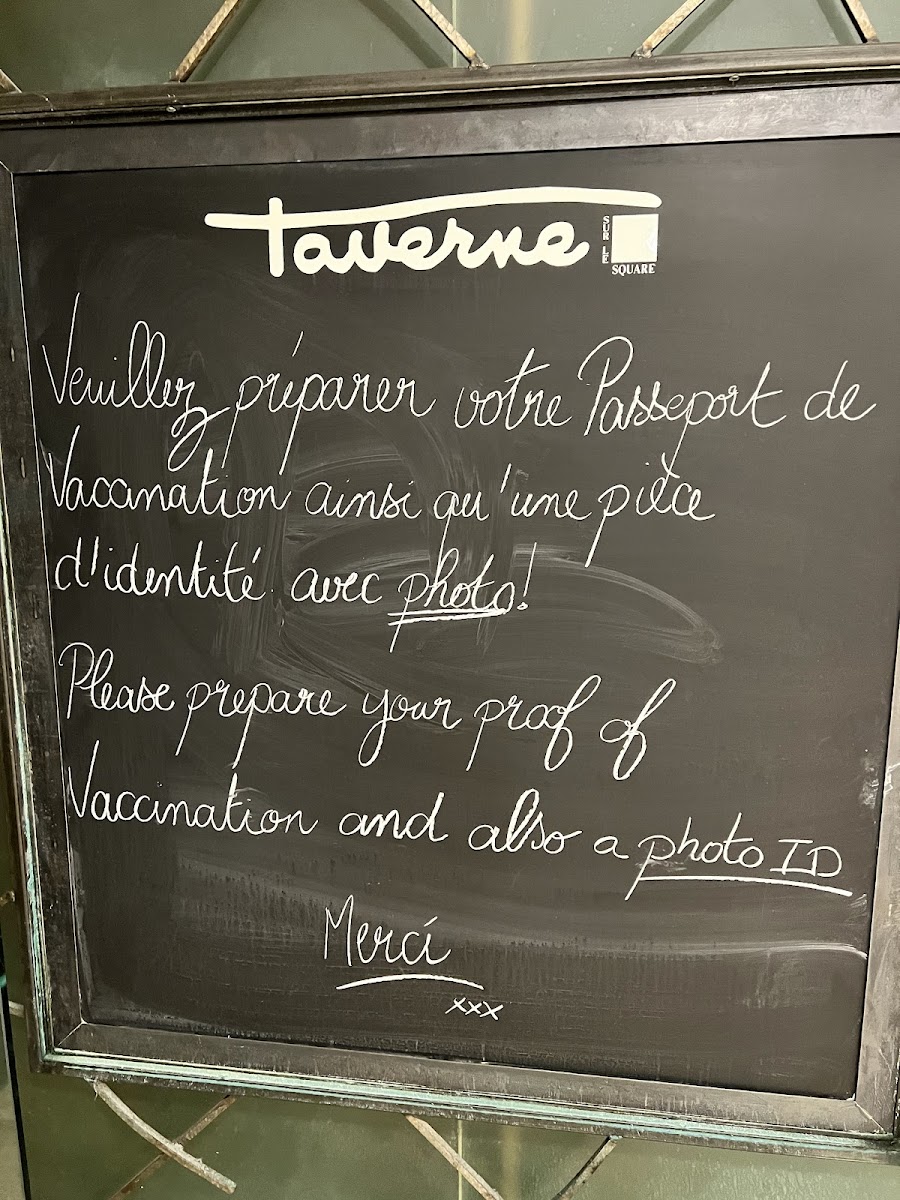 Taverne
SUR LE
SQUARE
Veuillez préparer votre Passeport de
Vaccination ainsi qu'une pièce
d'identité avec photo!
Please prepare your proof of
Vaccination and also a photo ID
Merci
xxx